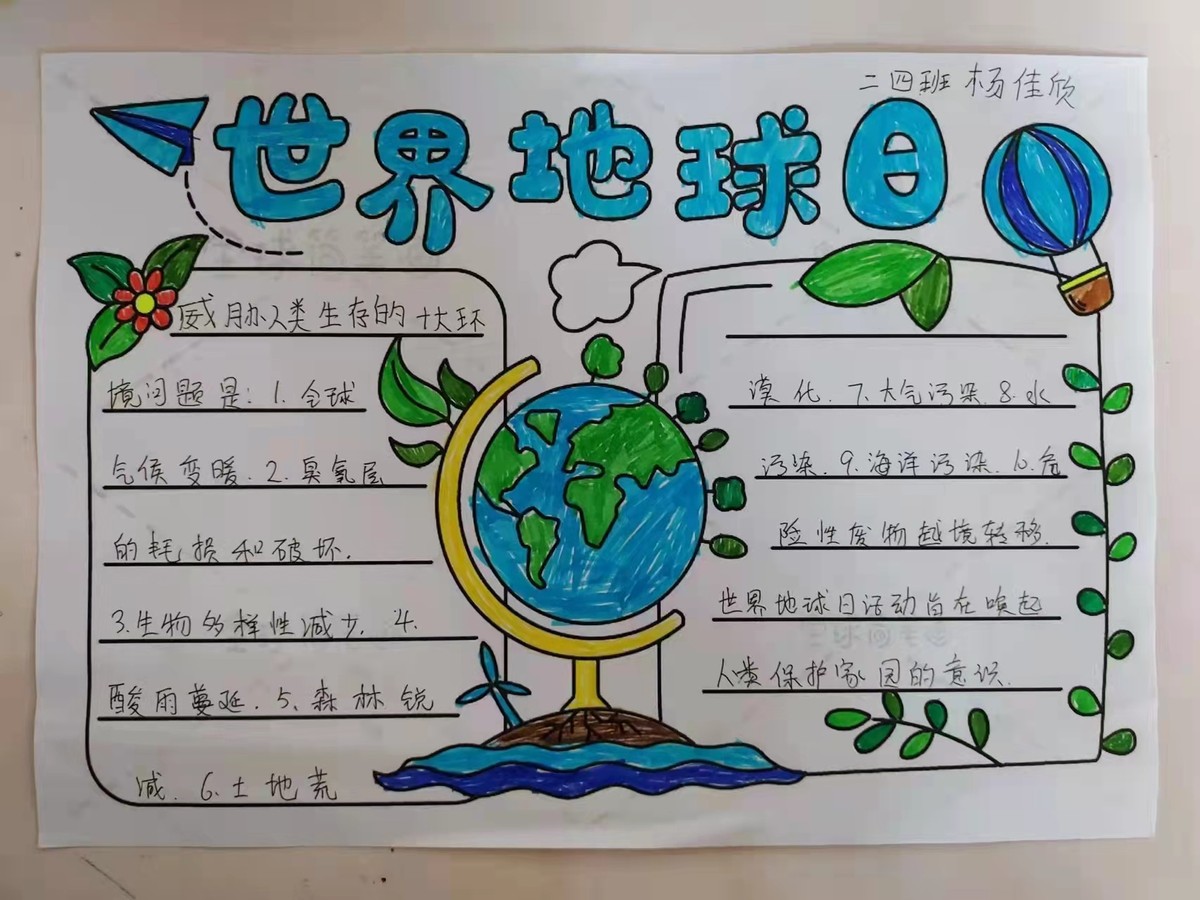 二四班 杨佳欣
世界地球日
威胁人类生存的十大环
境问题是：1.全球
气候变暖.2.臭氧层
的耗损和破坏.
3.生物多样性减少.4.
酸雨蔓延.5、森林锐
减.6.土地荒
漠化.7.大气污染.8.水
污染.9.海洋污染.10.危
险性废物越境转移.
世界地球日活动旨在唤起
人类保护家园的意识.